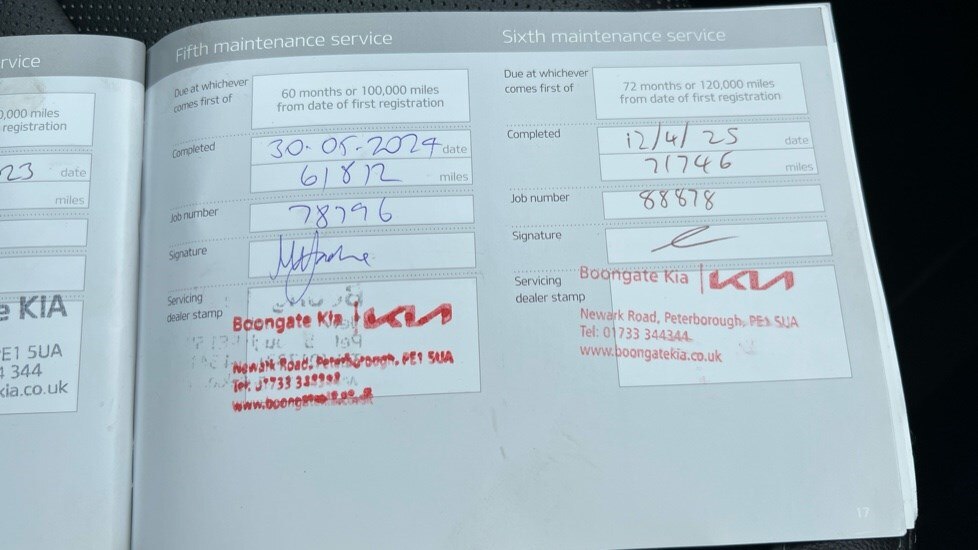 rvice
0,000 miles
registration
23 date
miles
e KIA
E1 5UA
344
kia.co.uk
Fifth maintenance service
Due at whichever
comes first of
60 months or 100,000 miles
from date of first registration
Completed
30-05-2024 date
61812 miles
Job number
78796
Signature
Servicing
dealer stamp
Boongate Kia | KIA
Newark Road, Peterborough, PE1 5UA
Tel: 01733
www.boongate
Sixth maintenance service
Due at whichever
comes first of
72 months or 120,000 miles
from date of first registration
Completed
12/4/25 date
71746 miles
Job number
88878
Signature
Servicing
dealer stamp
Boongate Kia | KIA
Newark Road, Peterborough, PE1 5UA
Tel: 01733 344344
www.boongatekia.co.uk
17